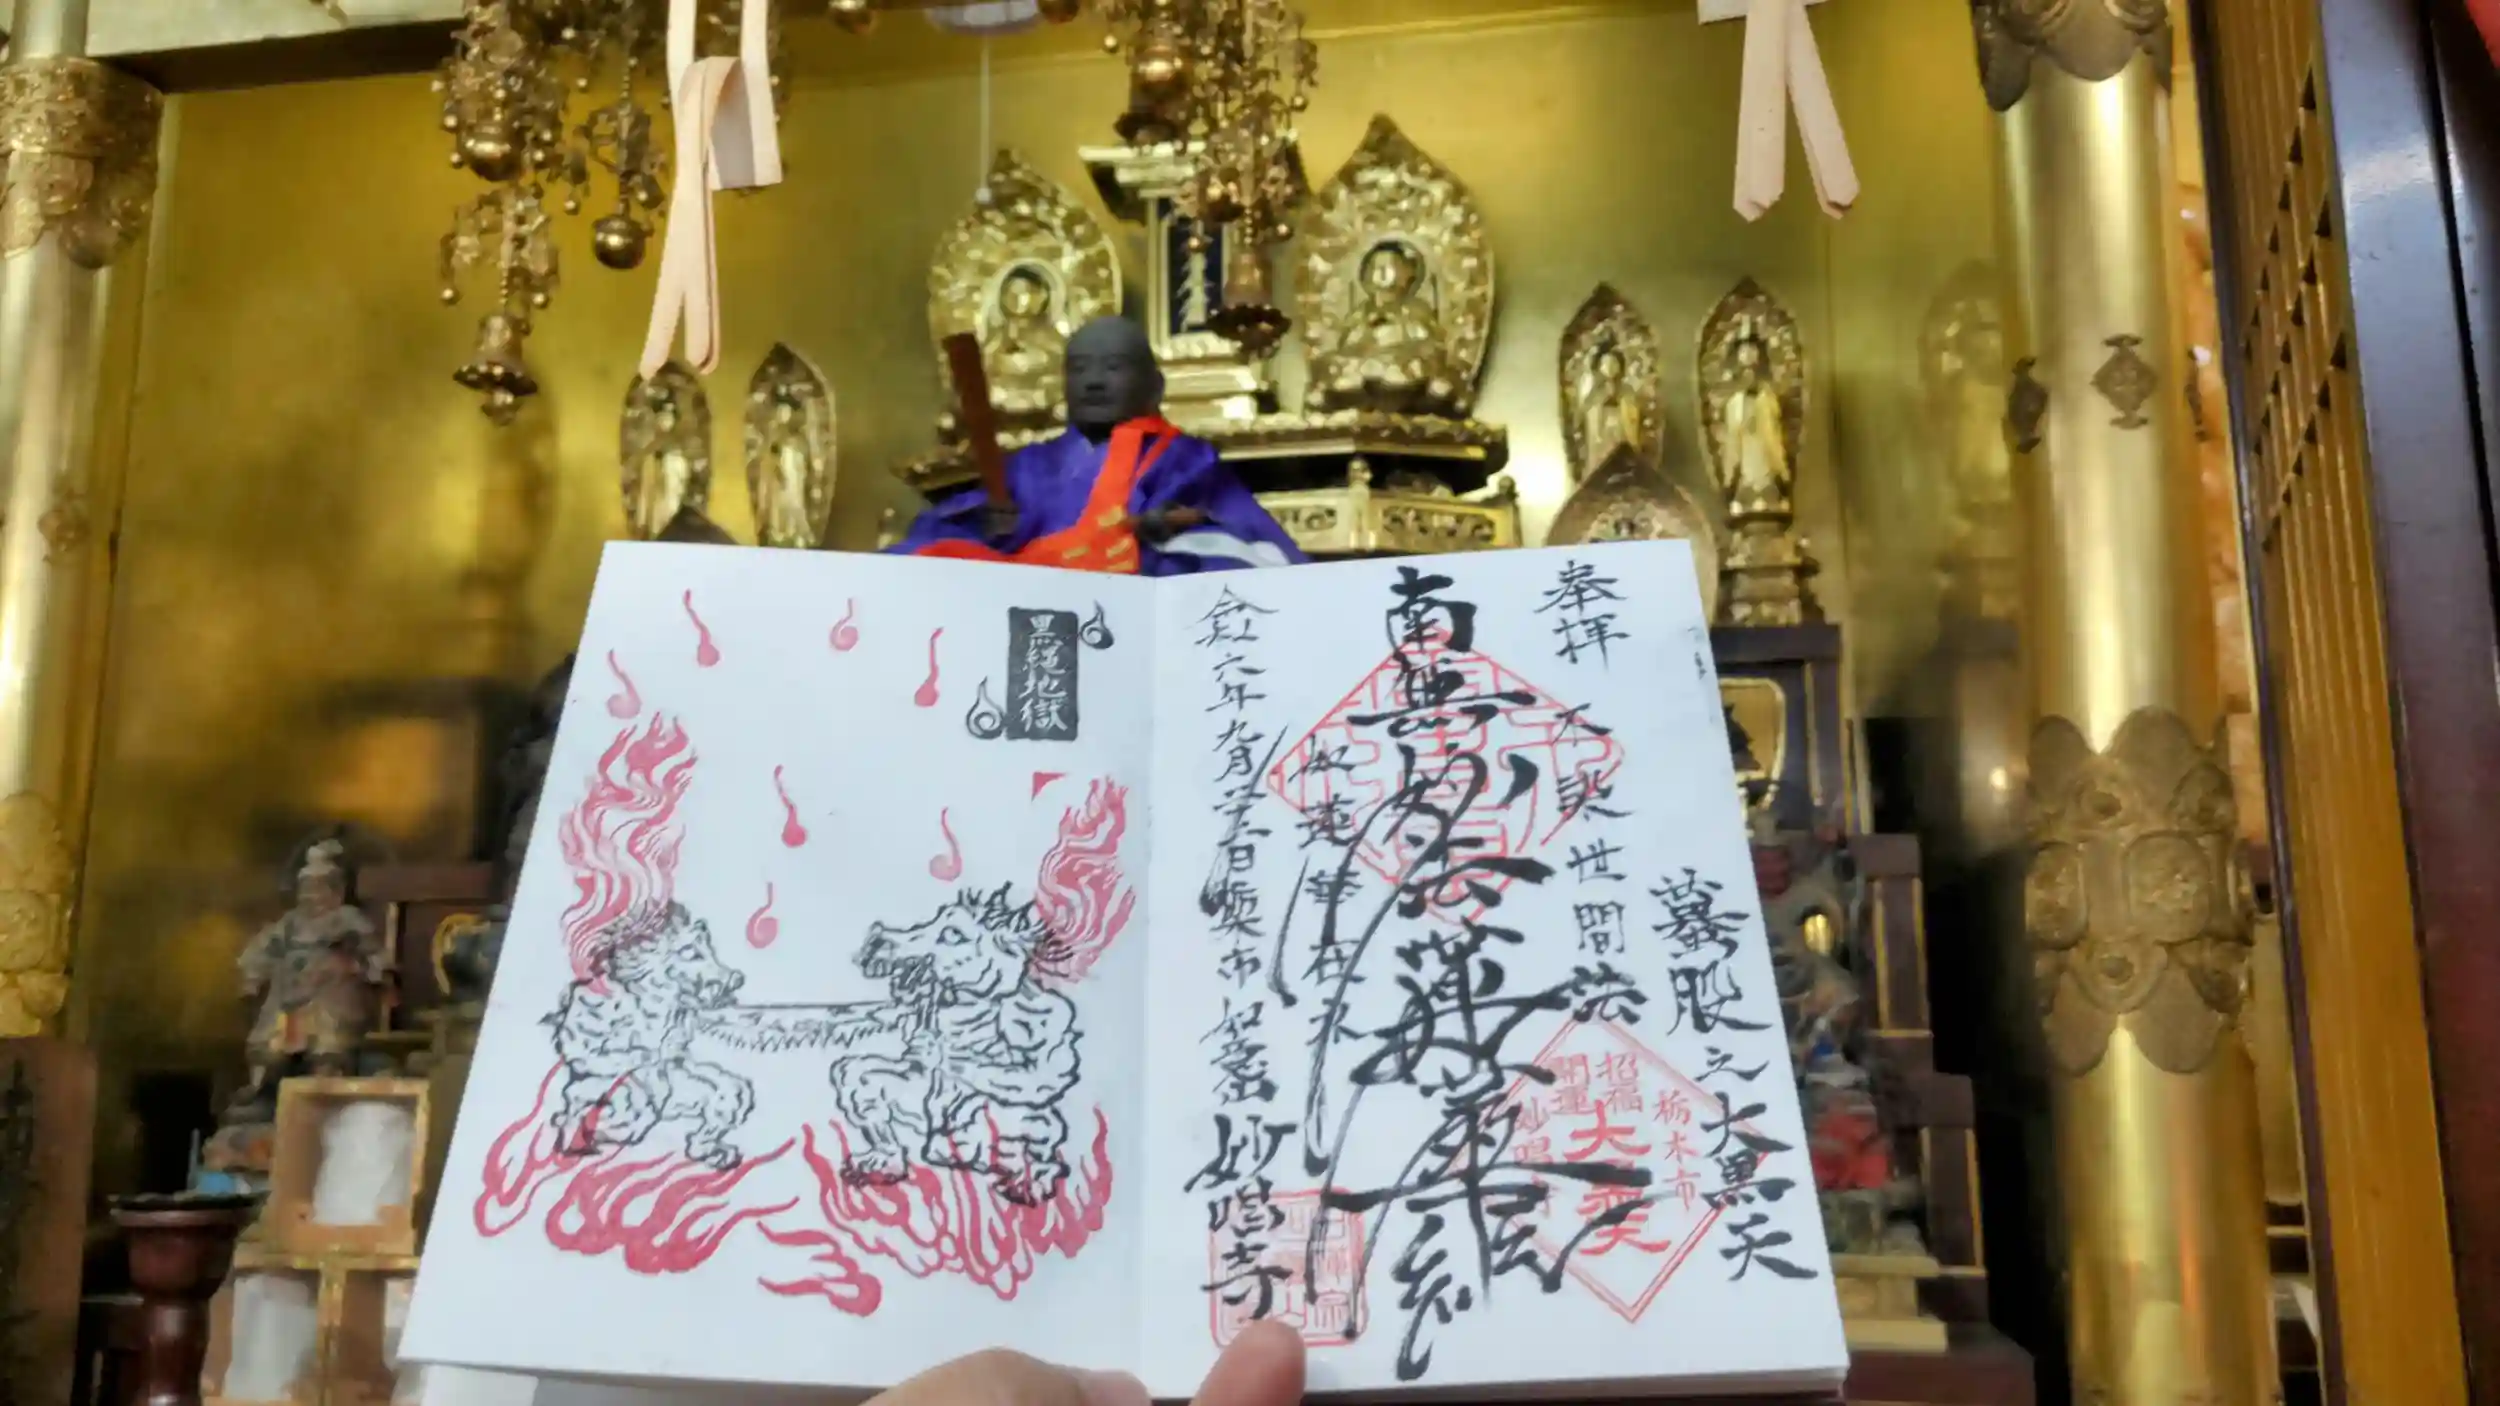 奉拝
蟇股之大黒天
不染世間法
南無妙法蓮華経
如蓮華在水
令和六年九月廿二日栃木市如意山妙唱寺
栃木市
招福
大黒天
開運
妙唱寺
黒縄地獄